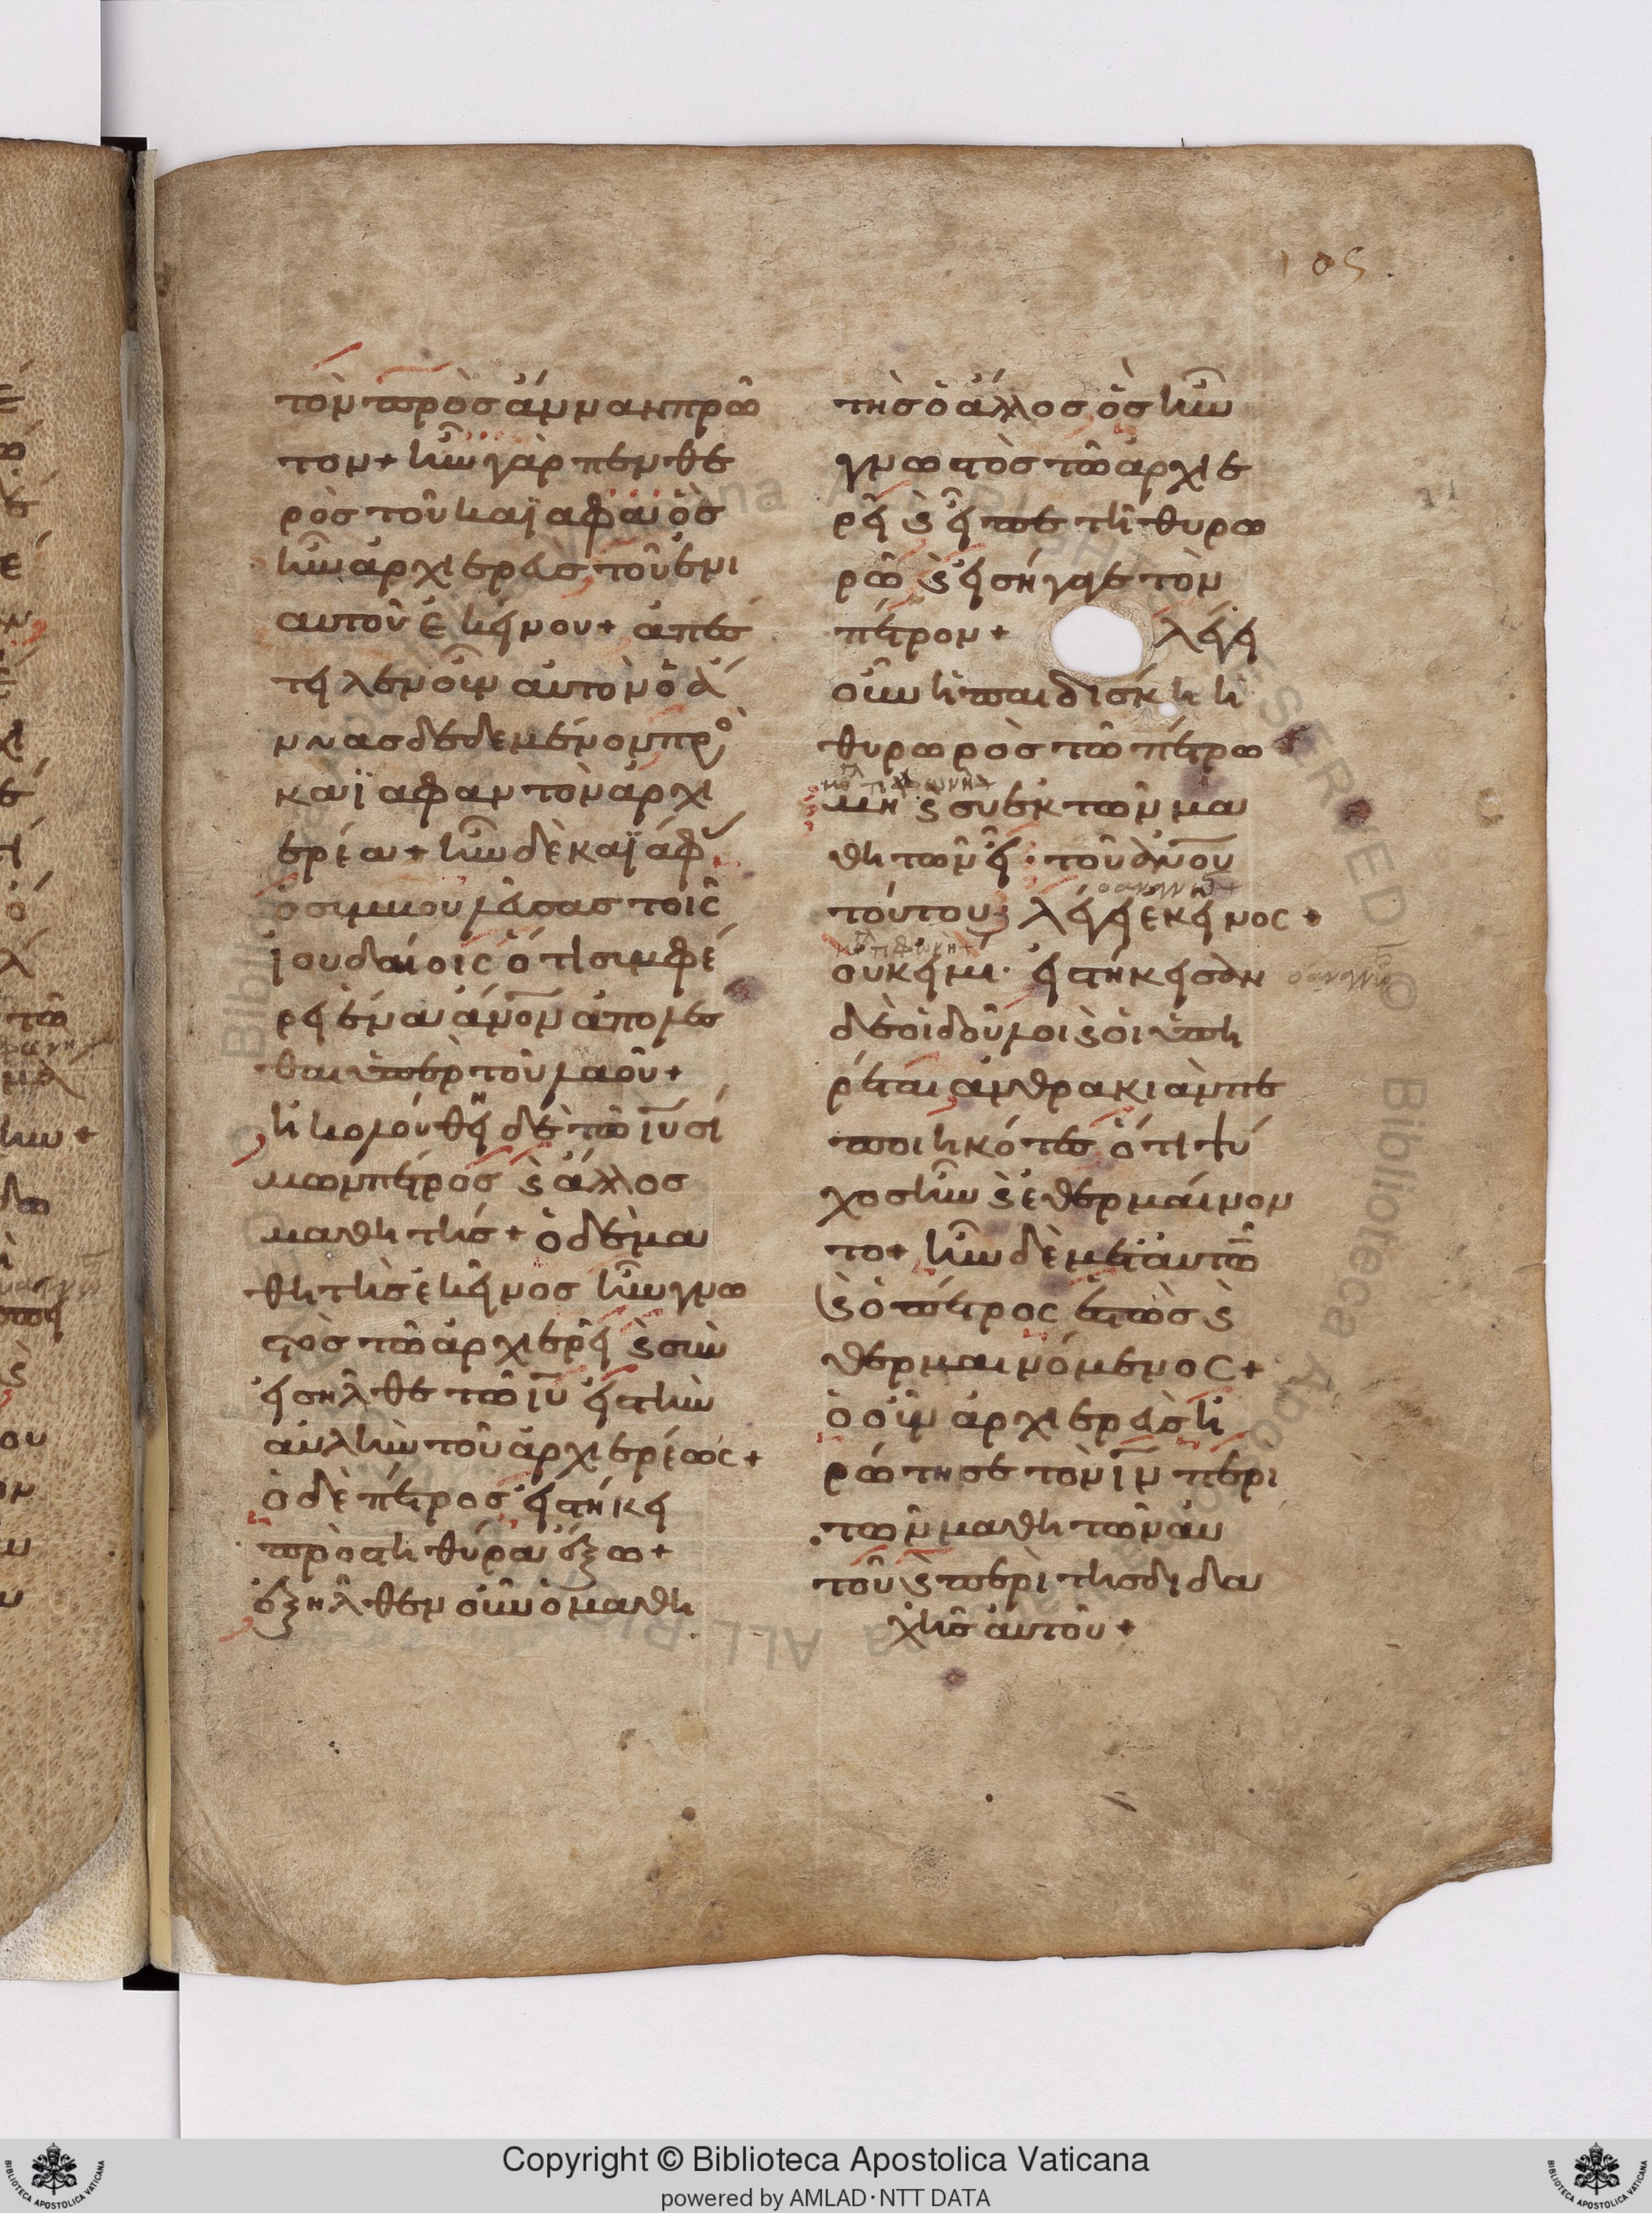 105
τὸν πρὸς ἄνναν πρῶ
τον + ἦν γὰρ πενθε
ρὸς τοῦ καϊάφα ὃς
ἦν ἀρχιερεὺς τοῦ ἐνι
αυτοῦ ἐκείνου + ἀπέσ
τειλεν οὖν αὐτὸν ὁ ἄ
ννας δεδεμένον πρὸ
καϊάφαν τὸν ἀρχι
ερέα + ἦν δὲ καϊάφ
ὁ συμβουλεύσας τοῖς
ἰουδαίοις ὅτι συμφέ
ρει ἕνα ἄνον ἀπολέσ
θαι ὑπὲρ τοῦ λαοῦ +
ἠκολούθει δὲ τῶ ιυ σί
μων πέτρος ϛ ἄλλος
μαθητής + ὁ δὲ μα
θητὴς ἐκεῖνος ἦν γνω
στὸς τῶ ἀρχιερεῖ ϛ συν
εισῆλθε τῶ ιυ εἰς τὴν
αὐλὴν τοῦ ἀρχιερέως +
ὁ δὲ πέτρος εἱστήκει
πρὸς τῆ θύρα ἔξω +
ἐξῆλθεν οὖν ὁ μαθη
τὴς ὁ ἄλλος ὃς ἦν
γνωστὸς τῶ ἀρχιε
ρεῖ ϛ εἶπε τῆ θυρω
ρῶ ϛ εἰσήγαγε τὸν
πέτρον + λέγει
οὖν ἡ παιδίσκη ἡ
θυρωρὸς τῶ πέτρω
μὴ ϛ συ ἐκ τῶν μα
θητῶν εἶ τοῦ ἀνου
τούτου; λέγει ἐκεῖνος +
οὐκ εἰμί. εἱστήκεισαν
δὲ οἱ δοῦλοι ϛ οἱ ὑπη
ρέται ἀνθρακιὰν πε
ποιηκότες ὅτι ψύ
χος ἦν ϛ ἐθερμαίνον
το + ἦν δὲ μετ αὐτῶν
ϛ ὁ πέτρος ἑστὼς ϛ
θερμαινόμενος +
ὁ οὖν ἀρχιερεὺς ἠ
ρώτησε τὸν ιν περι
τῶν μαθητῶν αὐ
τοῦ ϛ περὶ τῆς διδα
χῆς αὐτοῦ +
Copyright © Biblioteca Apostolica Vaticana
powered by AMLAD·NTT DATA